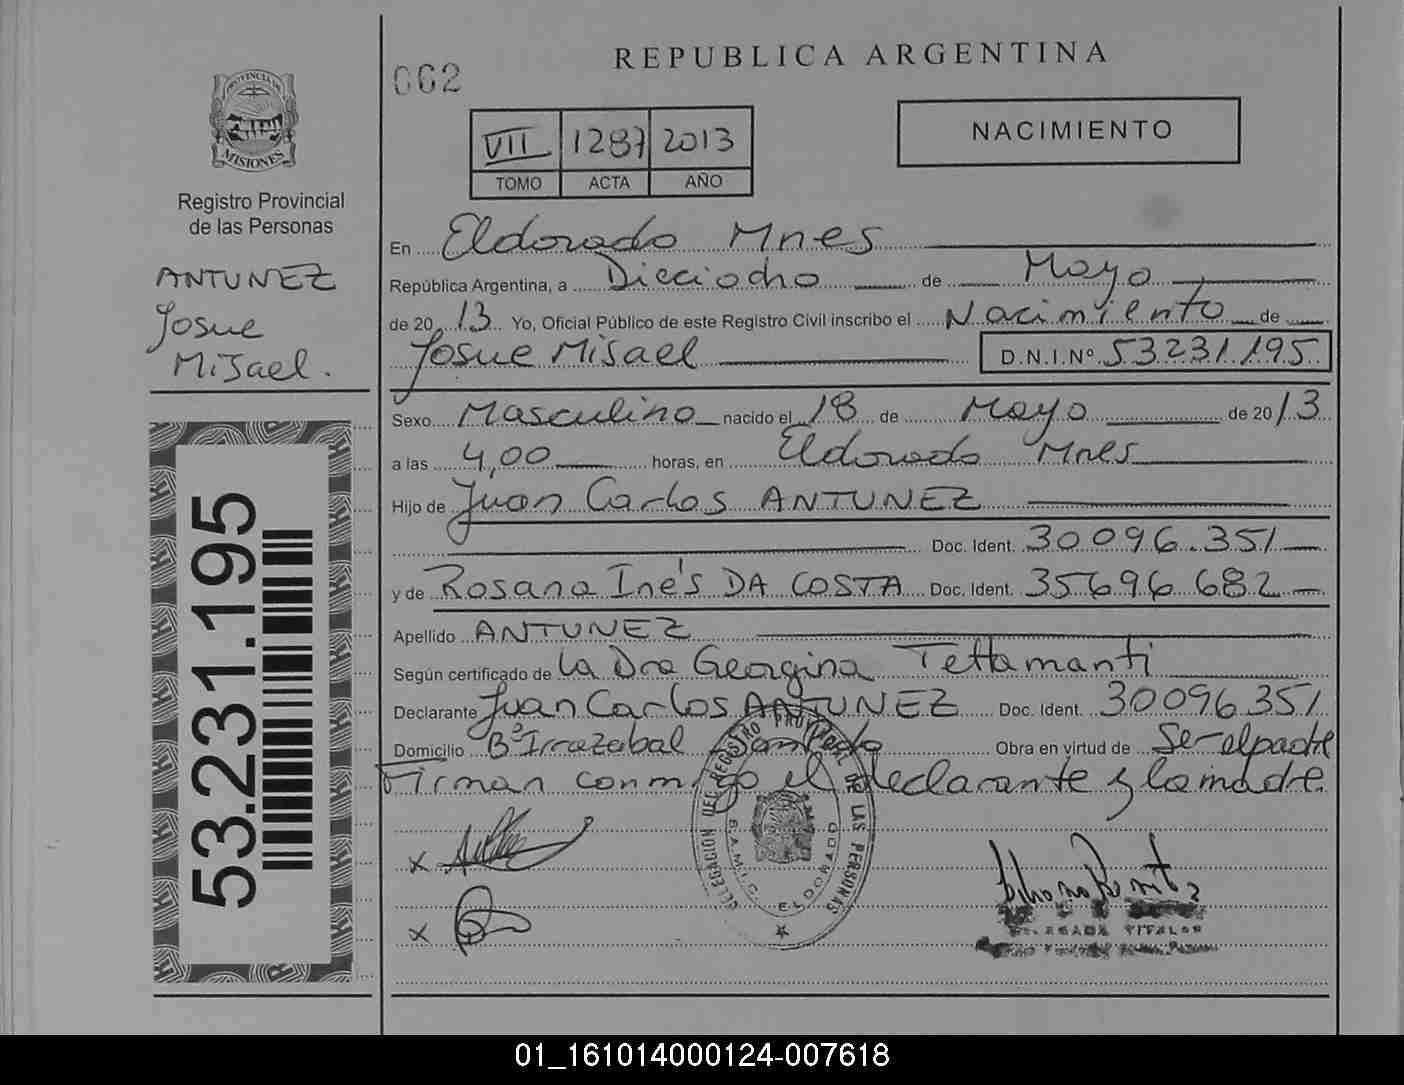 PROVINCIA DE
MISIONES
Registro Provincial
de las Personas
ANTUNEZ
Josue
Misael.
53.231.195
002
REPUBLICA ARGENTINA
VII 1287 2013
TOMO ACTA AÑO
NACIMIENTO
En Eldorado Mnes
República Argentina, a Dieciocho de Mayo
de 2013 Yo, Oficial Público de este Registro Civil inscribo el Nacimiento de
Josue Misael D.N.I.Nº 53231195
Sexo Masculino nacido el 18 de Mayo de 2013
a las 4,00 horas, en Eldorado Mnes
Hijo de Juan Carlos ANTUNEZ
Doc. Ident. 30096.351
y de Rosana Inés DA COSTA Doc. Ident. 35696682
Apellido ANTUNEZ
Según certificado de La Dra Georgina Tettamanti
Declarante Juan Carlos ANTUNEZ Doc. Ident. 30096351
Domicilio Bº Irrazabal Obra en virtud de Ser el padre
Firman conmigo el declarante y la madre.
DELEGACION DEL REGISTRO PROVINCIAL DE LAS PERSONAS
ELDORADO
x
x
TITULAR
01_161014000124-007618